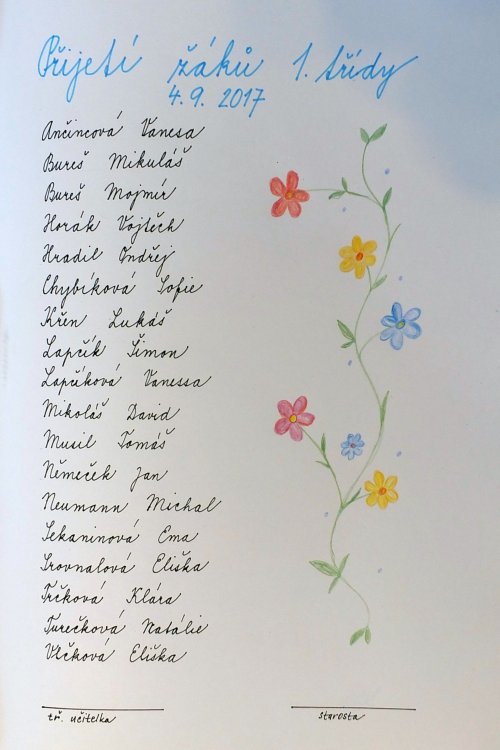 Přijetí žáků 1. třídy
4.9. 2017
Ančincová Vanesa
Bureš Mikuláš
Bureš Mojmír
Horák Vojtěch
Hradil Ondřej
Chybíková Sofie
Křen Lukáš
Lapčík Šimon
Lapčíková Vanessa
Mikoláš David
Musil Tomáš
Němeček Jan
Neumann Michal
Sekaninová Ema
Srovnalová Eliška
Trčková Klára
Turečková Natálie
Vlčková Eliška
tř. učitelka starosta